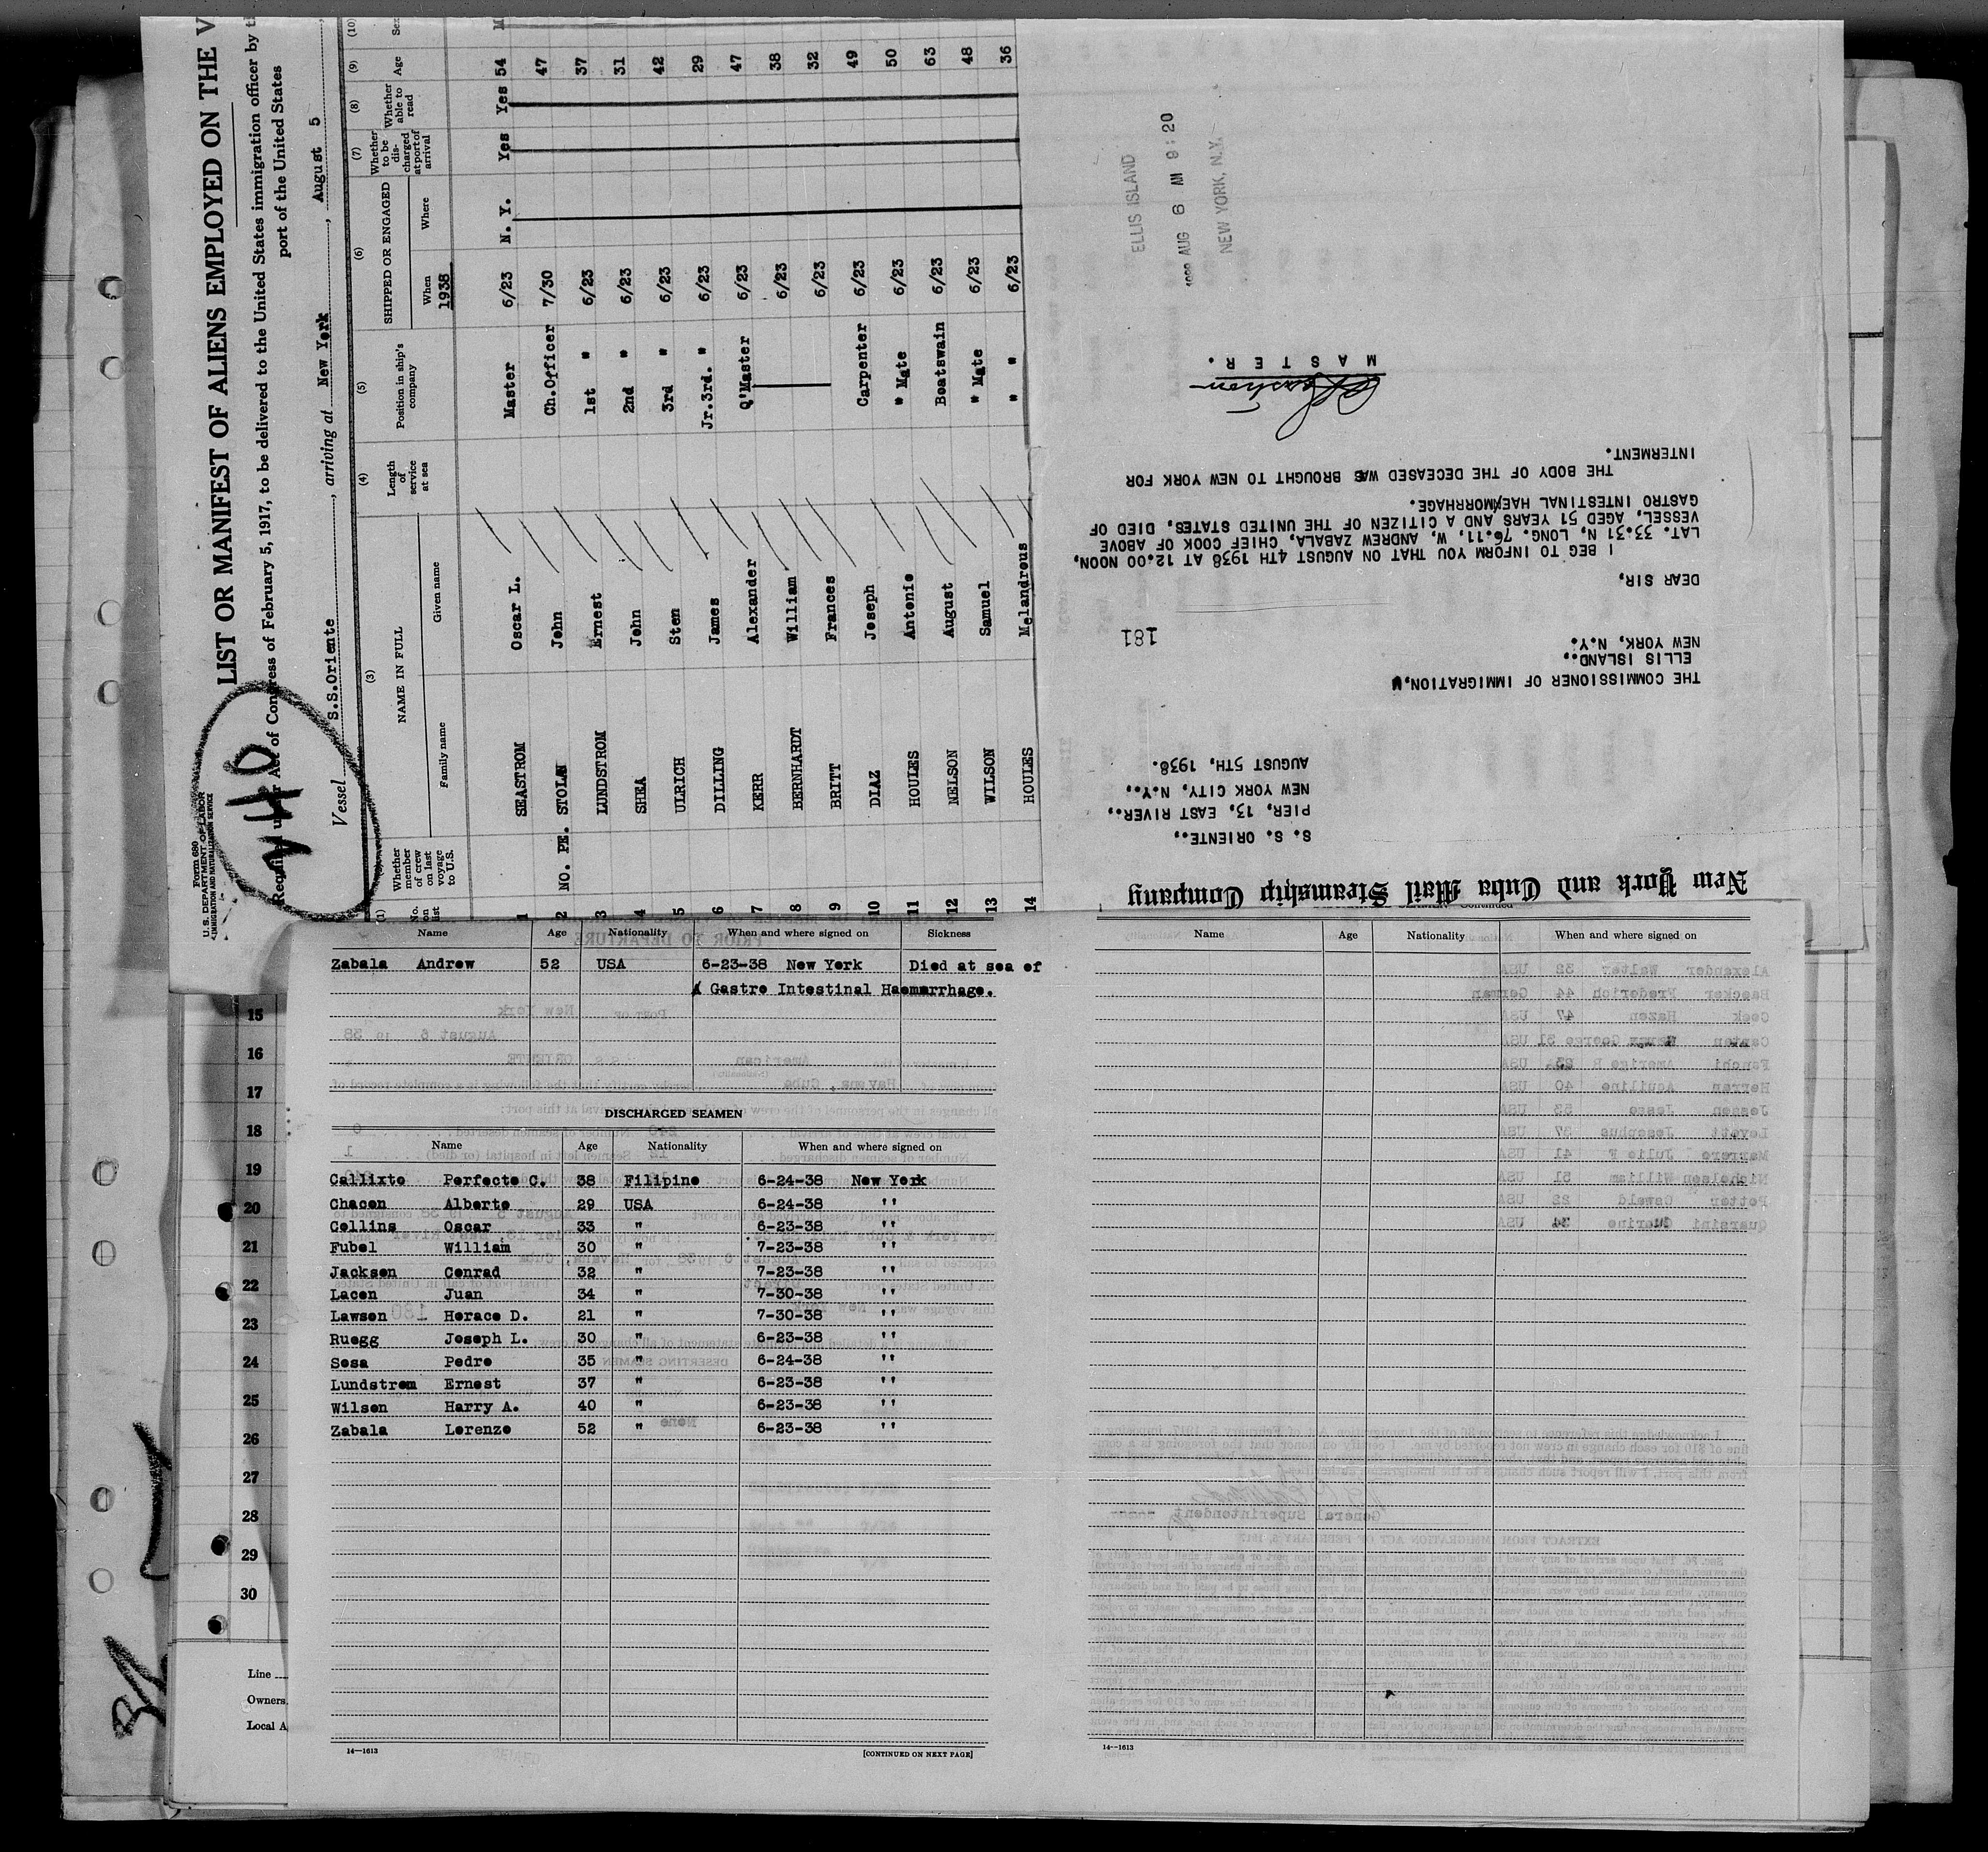 Form 680
U. S. DEPARTMENT OF LABOR
IMMIGRATION AND NATURALIZATION SERVICE
240
LIST OR MANIFEST OF ALIENS EMPLOYED ON THE V
Act of Congress of February 5, 1917, to be delivered to the United States immigration officer by
port of the United States
Vessel S.S.Oriente, arriving at New York, August 5
(1) (3) (4) (5) (6) (7) (8) (9) (10)
No. on list Whether member of crew on last voyage to U.S. NAME IN FULL Length of service at sea Position in ship's company SHIPPED OR ENGAGED Whether to be discharged at port of arrival Whether able to read Age Sex
Family name Given name When Where
1938
1 SEASTROM Oscar L. Master 6/23 N. Y. Yes Yes 54 M
2 NO. PE. STOLAN John Ch.Officer 7/30 47
3 LUNDSTROM Ernest 1st " 6/23 37
4 SHEA John 2nd " 6/23 31
5 ULRICH Sten 3rd " 6/23 42
6 DILLING James Jr.3rd. " 6/23 29
7 KERR Alexander Q'Master 6/23 47
8 BERNHARDT William 6/23 38
9 BRITT Frances 6/23 32
10 DIAZ Joseph Carpenter 6/23 49
11 HOULES Antonio " Mate 6/23 50
12 NEILSON August Boatswain 6/23 63
13 WILSON Samuel " Mate 6/23 48
14 HOULES Melandrous " " 6/23 36
New York and Cuba Mail Steamship Company
S. S. ORIENTE.,
PIER, 13, EAST RIVER.,
NEW YORK CITY, N.Y.,
AUGUST 5TH, 1938.
THE COMMISSIONER OF IMMIGRATION,
ELLIS ISLAND.,
NEW YORK, N.Y.
181
DEAR SIR,
I BEG TO INFORM YOU THAT ON AUGUST 4TH 1938 AT 12.00 NOON,
LAT. 33.31 N, LONG. 76.11. W, ANDREW ZABALA, CHIEF COOK OF ABOVE
VESSEL, AGED 51 YEARS AND A CITIZEN OF THE UNITED STATES, DIED OF
GASTRO INTESTINAL HAEMORRHAGE.
THE BODY OF THE DECEASED WAS BROUGHT TO NEW YORK FOR
INTERMENT.
M A S T E R .
ELLIS ISLAND
AUG 6 AM 9:20
NEW YORK, N.Y.
Name Age Nationality When and where signed on Sickness
Zabala Andrew 52 USA 6-23-38 New York Died at sea of
Gastro Intestinal Haemmrrhage.
DISCHARGED SEAMEN
Name Age Nationality When and where signed on
Callixto Perfecto C. 38 Filipino 6-24-38 New York
Chacon Alberto 29 USA 6-24-38 ''
Collins Oscar 33 " 6-23-38 ''
Fubel William 30 " 7-23-38 ''
Jackson Conrad 32 " 7-23-38 ''
Lacon Juan 34 " 7-30-38 ''
Lawson Horace D. 21 " 7-30-38 ''
Ruegg Joseph L. 30 " 6-23-38 ''
Sosa Pedro 35 " 6-24-38 ''
Lundstrom Ernest 37 " 6-23-38 ''
Wilson Harry A. 40 " 6-23-38 ''
Zabala Lorenzo 52 " 6-23-38 ''
14—1613
[CONTINUED ON NEXT PAGE]
Name Age Nationality When and where signed on
14—1613
15
16
17
18
19
20
21
22
23
24
25
26
27
28
29
30
Line
Owners
Local A